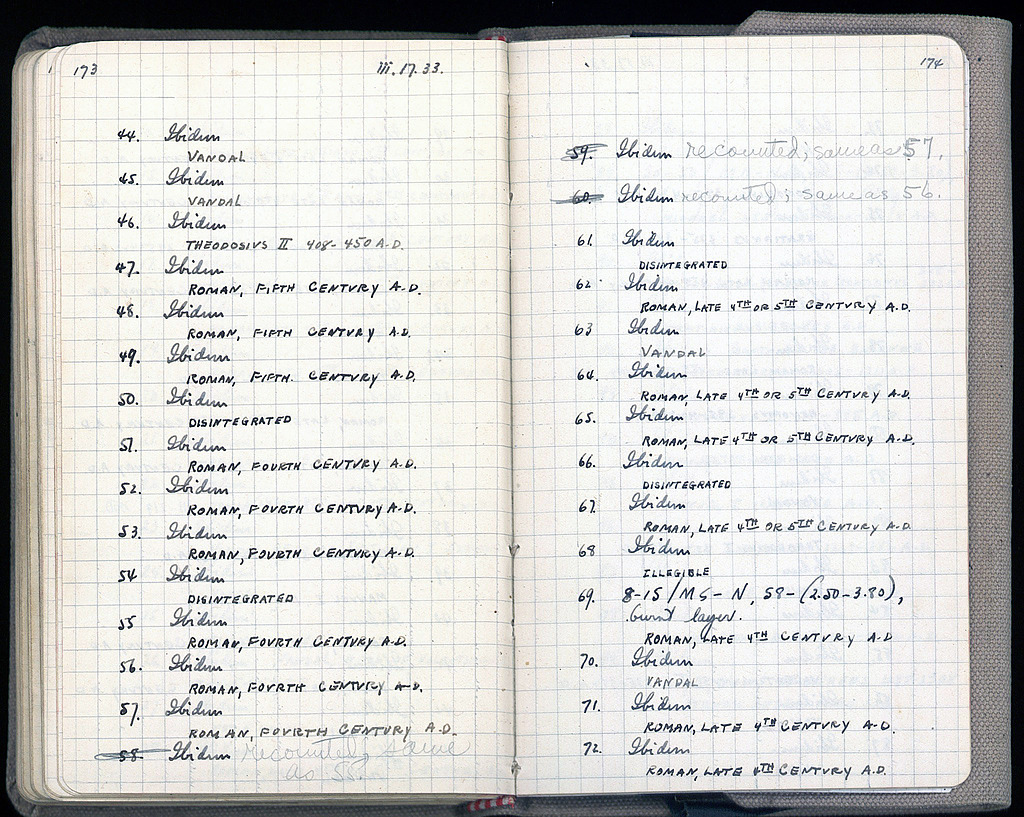 173
III.17.33.
44. Ibidem
VANDAL
45. Ibidem
VANDAL
46. Ibidem
THEODOSIUS II 408-450 A.D.
47. Ibidem
ROMAN, FIFTH CENTURY A.D.
48. Ibidem
ROMAN, FIFTH CENTURY A.D.
49. Ibidem
ROMAN, FIFTH. CENTURY A.D.
50. Ibidem
DISINTEGRATED
51. Ibidem
ROMAN, FOURTH CENTURY A.D.
52. Ibidem
ROMAN, FOURTH CENTURY A.D.
53. Ibidem
ROMAN, FOURTH CENTURY A.D.
54 Ibidem
DISINTEGRATED
55 Ibidem
ROMAN, FOURTH CENTURY A.D.
56. Ibidem
ROMAN, FOURTH CENTURY A.D.
57. Ibidem
ROMAN, FOURTH CENTURY A.D.
58. Ibidem recounted; same
as 55.
174
59. Ibidem recounted; same as 57.
60. Ibidem recounted; same as 56.
61. Ibidem
DISINTEGRATED
62. Ibidem
ROMAN, LATE 4TH OR 5TH CENTURY A.D.
63 Ibidem
VANDAL
64. Ibidem
ROMAN, LATE 4TH OR 5TH CENTURY A.D.
65. Ibidem
ROMAN, LATE 4TH OR 5TH CENTURY A.D.
66. Ibidem
DISINTEGRATED
67. Ibidem
ROMAN, LATE 4TH OR 5TH CENTURY A.D.
68 Ibidem
ILLEGIBLE
69. 8-15/MS-N, 58-(2.50-3.80),
burnt layer.
ROMAN, LATE 4TH CENTURY A.D
70. Ibidem
VANDAL
71. Ibidem
ROMAN, LATE 4TH CENTURY A.D.
72. Ibidem
ROMAN, LATE 4TH CENTURY A.D.